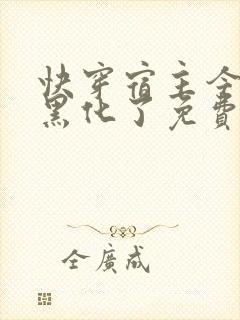 快穿宿主全
黑化了免費
全廣成